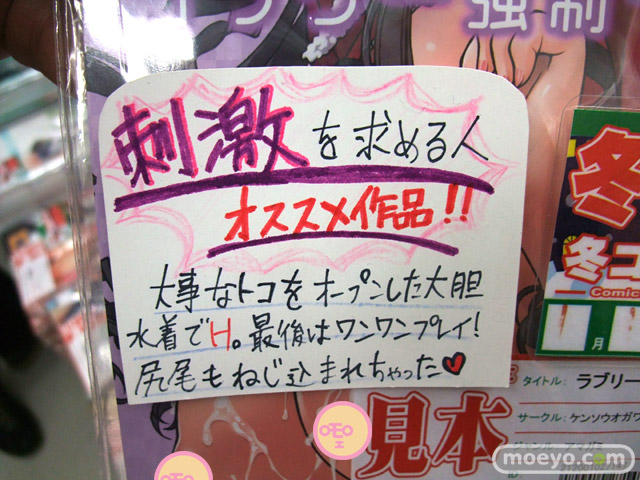 強制
刺激を求める人
オススメ作品!!
大事なトコをオープンした大胆
水着でH。最後はワンワンプレイ!
尻尾もねじ込まれちゃった♥
冬
冬コ
Comic
月
タイトル: ラブリー
サークル: ケンソウオガワ
見本
moeyo.com